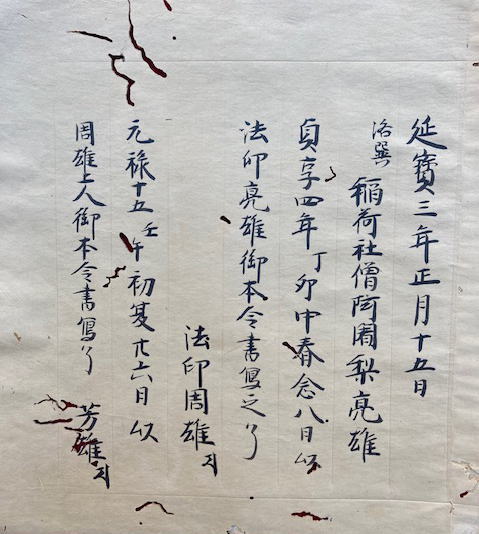 延寳三年正月十五日
洛巽 稲荷社僧阿闍梨亮雄
貞享四年丁卯中春念八日以
法印亮雄御本令書寫之了
法印周雄
元禄十五壬午初夏廿六日以
周雄上人御本令書寫了
芳雄